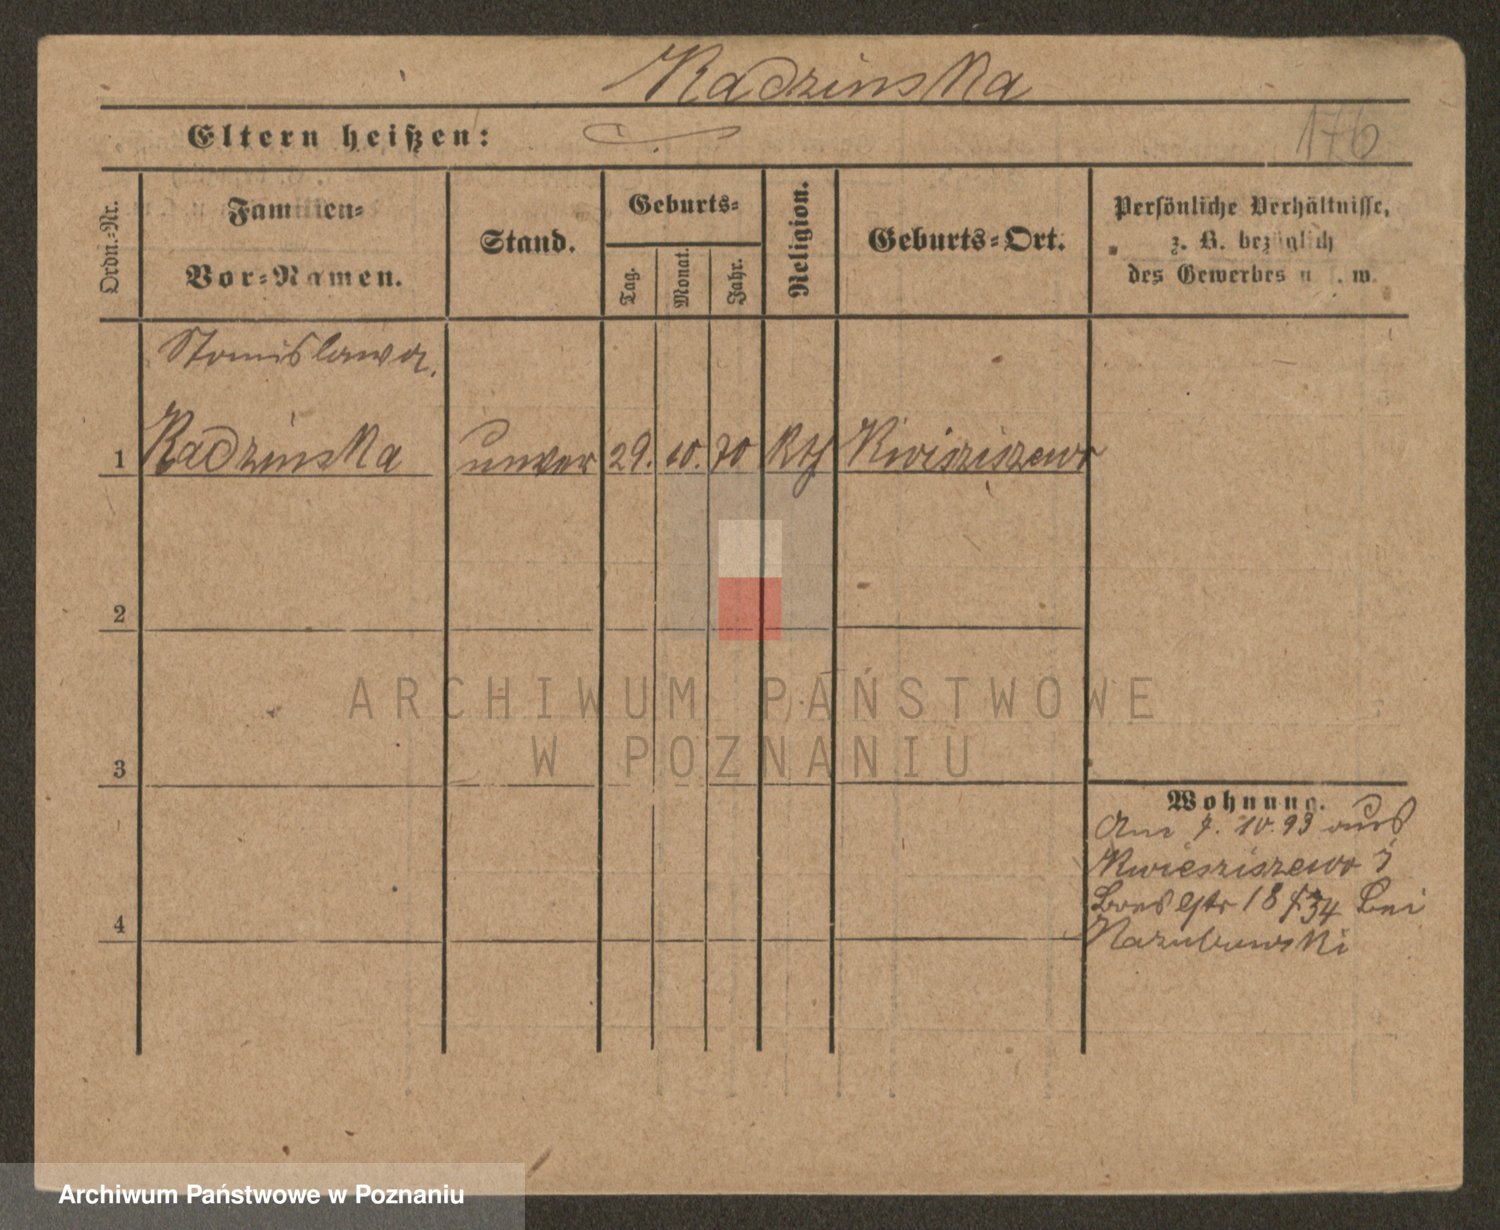 Radzinska
Eltern heißen:
176
Ordn.-Nr.
Familien-
Vor-Namen.
Stand.
Geburts-
Tag.
Monat.
Jahr.
Religion.
Geburts-Ort.
Persönliche Verhältnisse,
z. B. bezüglich
des Gewerbes u. s. w.
Stanislawa.
1 Radzinska unver 29. 10. 70 Kth Kwisziszewo
2
3
4
Wohnung.
Am 7. 10. 93 aus
Kwiesziszewo
18 34 bei
ARCHIWUM PAŃSTWOWE
W POZNANIU
Archiwum Państwowe w Poznaniu